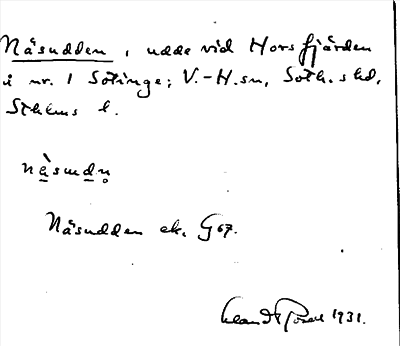 Näsudden, udde vid Horsfjärden
i nr. 1 Sotinge; V.-H.sn, Soth. shd,
Sthlms l.
nä̀sudn̥
Näsudden ek. G 67.
1931.